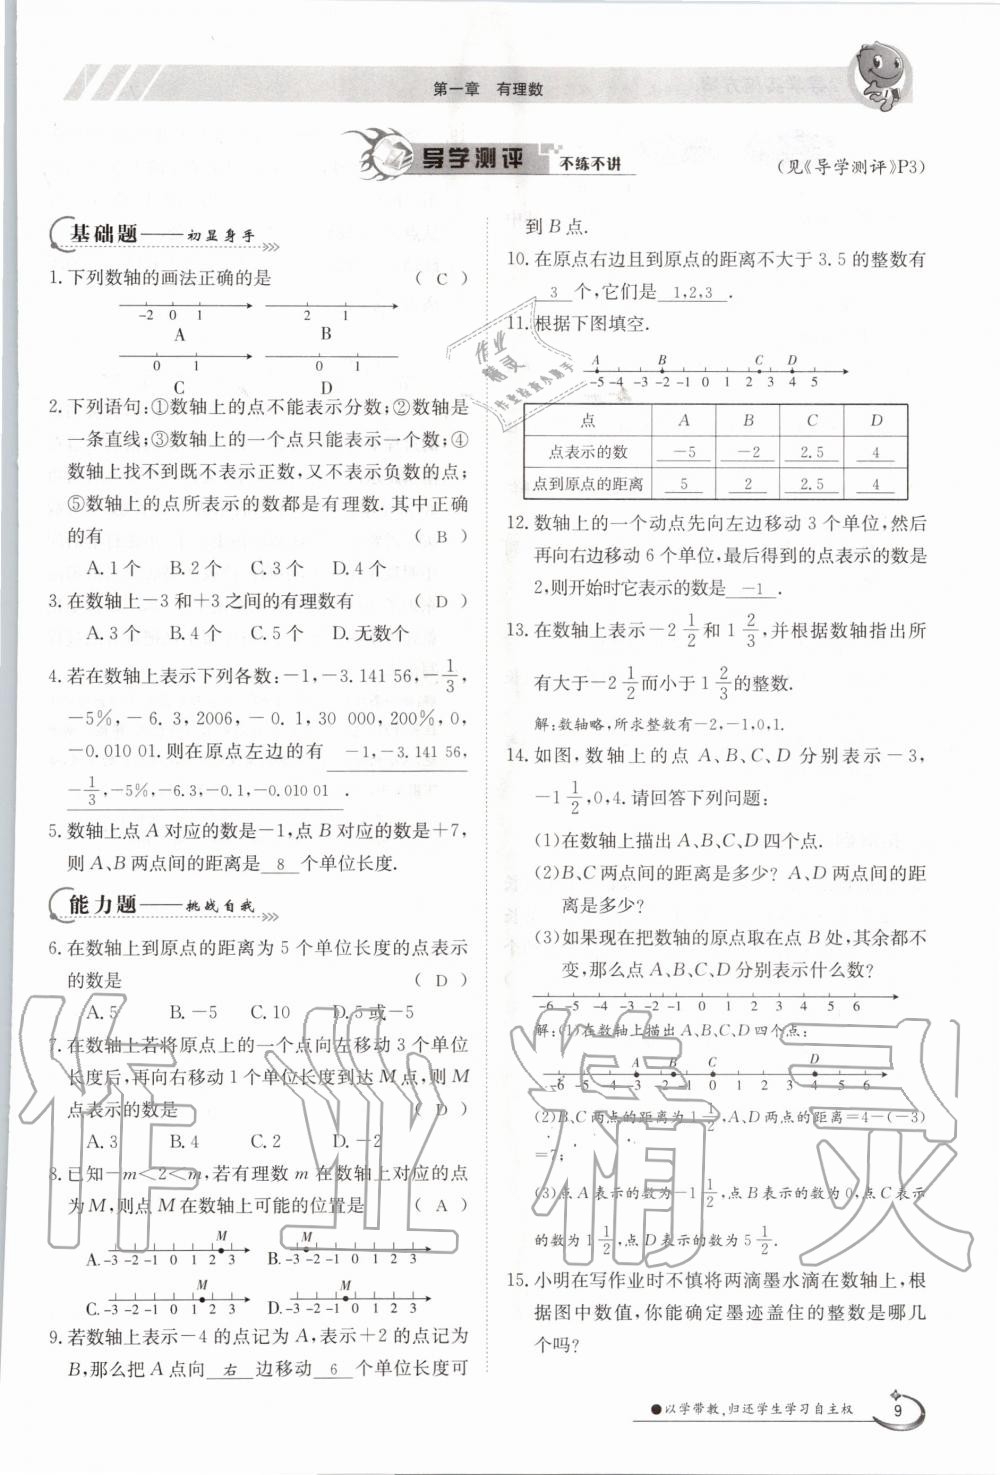 第一章 有理数
导学测评 不练不讲
(见《导学测评》P3)
基础题——初显身手
1. 下列数轴的画法正确的是 ( C )
-2 0 1
A
2 1
B
0 1
C
0 1
D
2. 下列语句:①数轴上的点不能表示分数;②数轴是
一条直线;③数轴上的一个点只能表示一个数;④
数轴上找不到既不表示正数,又不表示负数的点;
⑤数轴上的点所表示的数都是有理数. 其中正确
的有 ( B )
A. 1个 B. 2个 C. 3个 D. 4个
3. 在数轴上-3和+3之间的有理数有 ( D )
A. 3个 B. 4个 C. 5个 D. 无数个
4. 若在数轴上表示下列各数:-1,-3.141 56,-1/3,
-5%,-6.3,2006,-0.1,30 000,200%,0,
-0.010 01. 则在原点左边的有 -1,-3.141 56,
-1/3,-5%,-6.3,-0.1,-0.010 01 .
5. 数轴上点A对应的数是-1,点B对应的数是+7,
则A、B两点间的距离是 8 个单位长度.
能力题——挑战自我
6. 在数轴上到原点的距离为5个单位长度的点表示
的数是 ( D )
A. 5 B. -5 C. 10 D. 5或-5
7. 在数轴上若将原点上的一个点向左移动3个单位
长度后,再向右移动1个单位长度到达M点,则M
点表示的数是 ( D )
A. 3 B. 4 C. 2 D. -2
8. 已知-m<2<m,若有理数m在数轴上对应的点
为M,则点M在数轴上可能的位置是 ( A )
M M
A. -3 -2 -1 0 1 2 3 B. -3 -2 -1 0 1 2 3
M M
C. -3 -2 -1 0 1 2 3 D. -3 -2 -1 0 1 2 3
9. 若数轴上表示-4的点记为A,表示+2的点记为
B,那么把A点向 右 边移动 6 个单位长度可
到B点.
10. 在原点右边且到原点的距离不大于3.5的整数有
3 个,它们是 1,2,3 .
11. 根据下图填空.
A B C D
-5 -4 -3 -2 -1 0 1 2 3 4 5
点 A B C D
点表示的数 -5 -2 2.5 4
点到原点的距离 5 2 2.5 4
12. 数轴上的一个动点先向左边移动3个单位,然后
再向右边移动6个单位,最后得到的点表示的数是
2,则开始时它表示的数是 -1 .
13. 在数轴上表示-2 1/2和1 2/3,并根据数轴指出所
有大于-2 1/2而小于1 2/3的整数.
解:数轴略,所求整数有-2,-1,0,1.
14. 如图,数轴上的点A、B、C、D分别表示-3,
-1 1/2,0,4. 请回答下列问题:
(1)在数轴上描出A、B、C、D四个点.
(2)B、C两点间的距离是多少? A、D两点间的距
离是多少?
(3)如果现在把数轴的原点取在点B处,其余都不
变,那么点A、B、C、D分别表示什么数?
-6 -5 -4 -3 -2 -1 0 1 2 3 4 5 6
解:(1)在数轴上描出A、B、C、D四个点:
A B C D
-6 -5 -4 -3 -2 -1 0 1 2 3 4 5 6
(2)B、C两点的距离为1 1/2,A、D两点的距离=4-(-3)
=7;
(3)点A表示的数为-1 1/2,点B表示的数为0,点C表示
的数为1 1/2,点D表示的数为5 1/2.
15. 小明在写作业时不慎将两滴墨水滴在数轴上,根
据图中数值,你能确定墨迹盖住的整数是哪几
个吗?
●以学带教,归还学生学习自主权
9
作业精灵
作业精灵
作业检查小助手